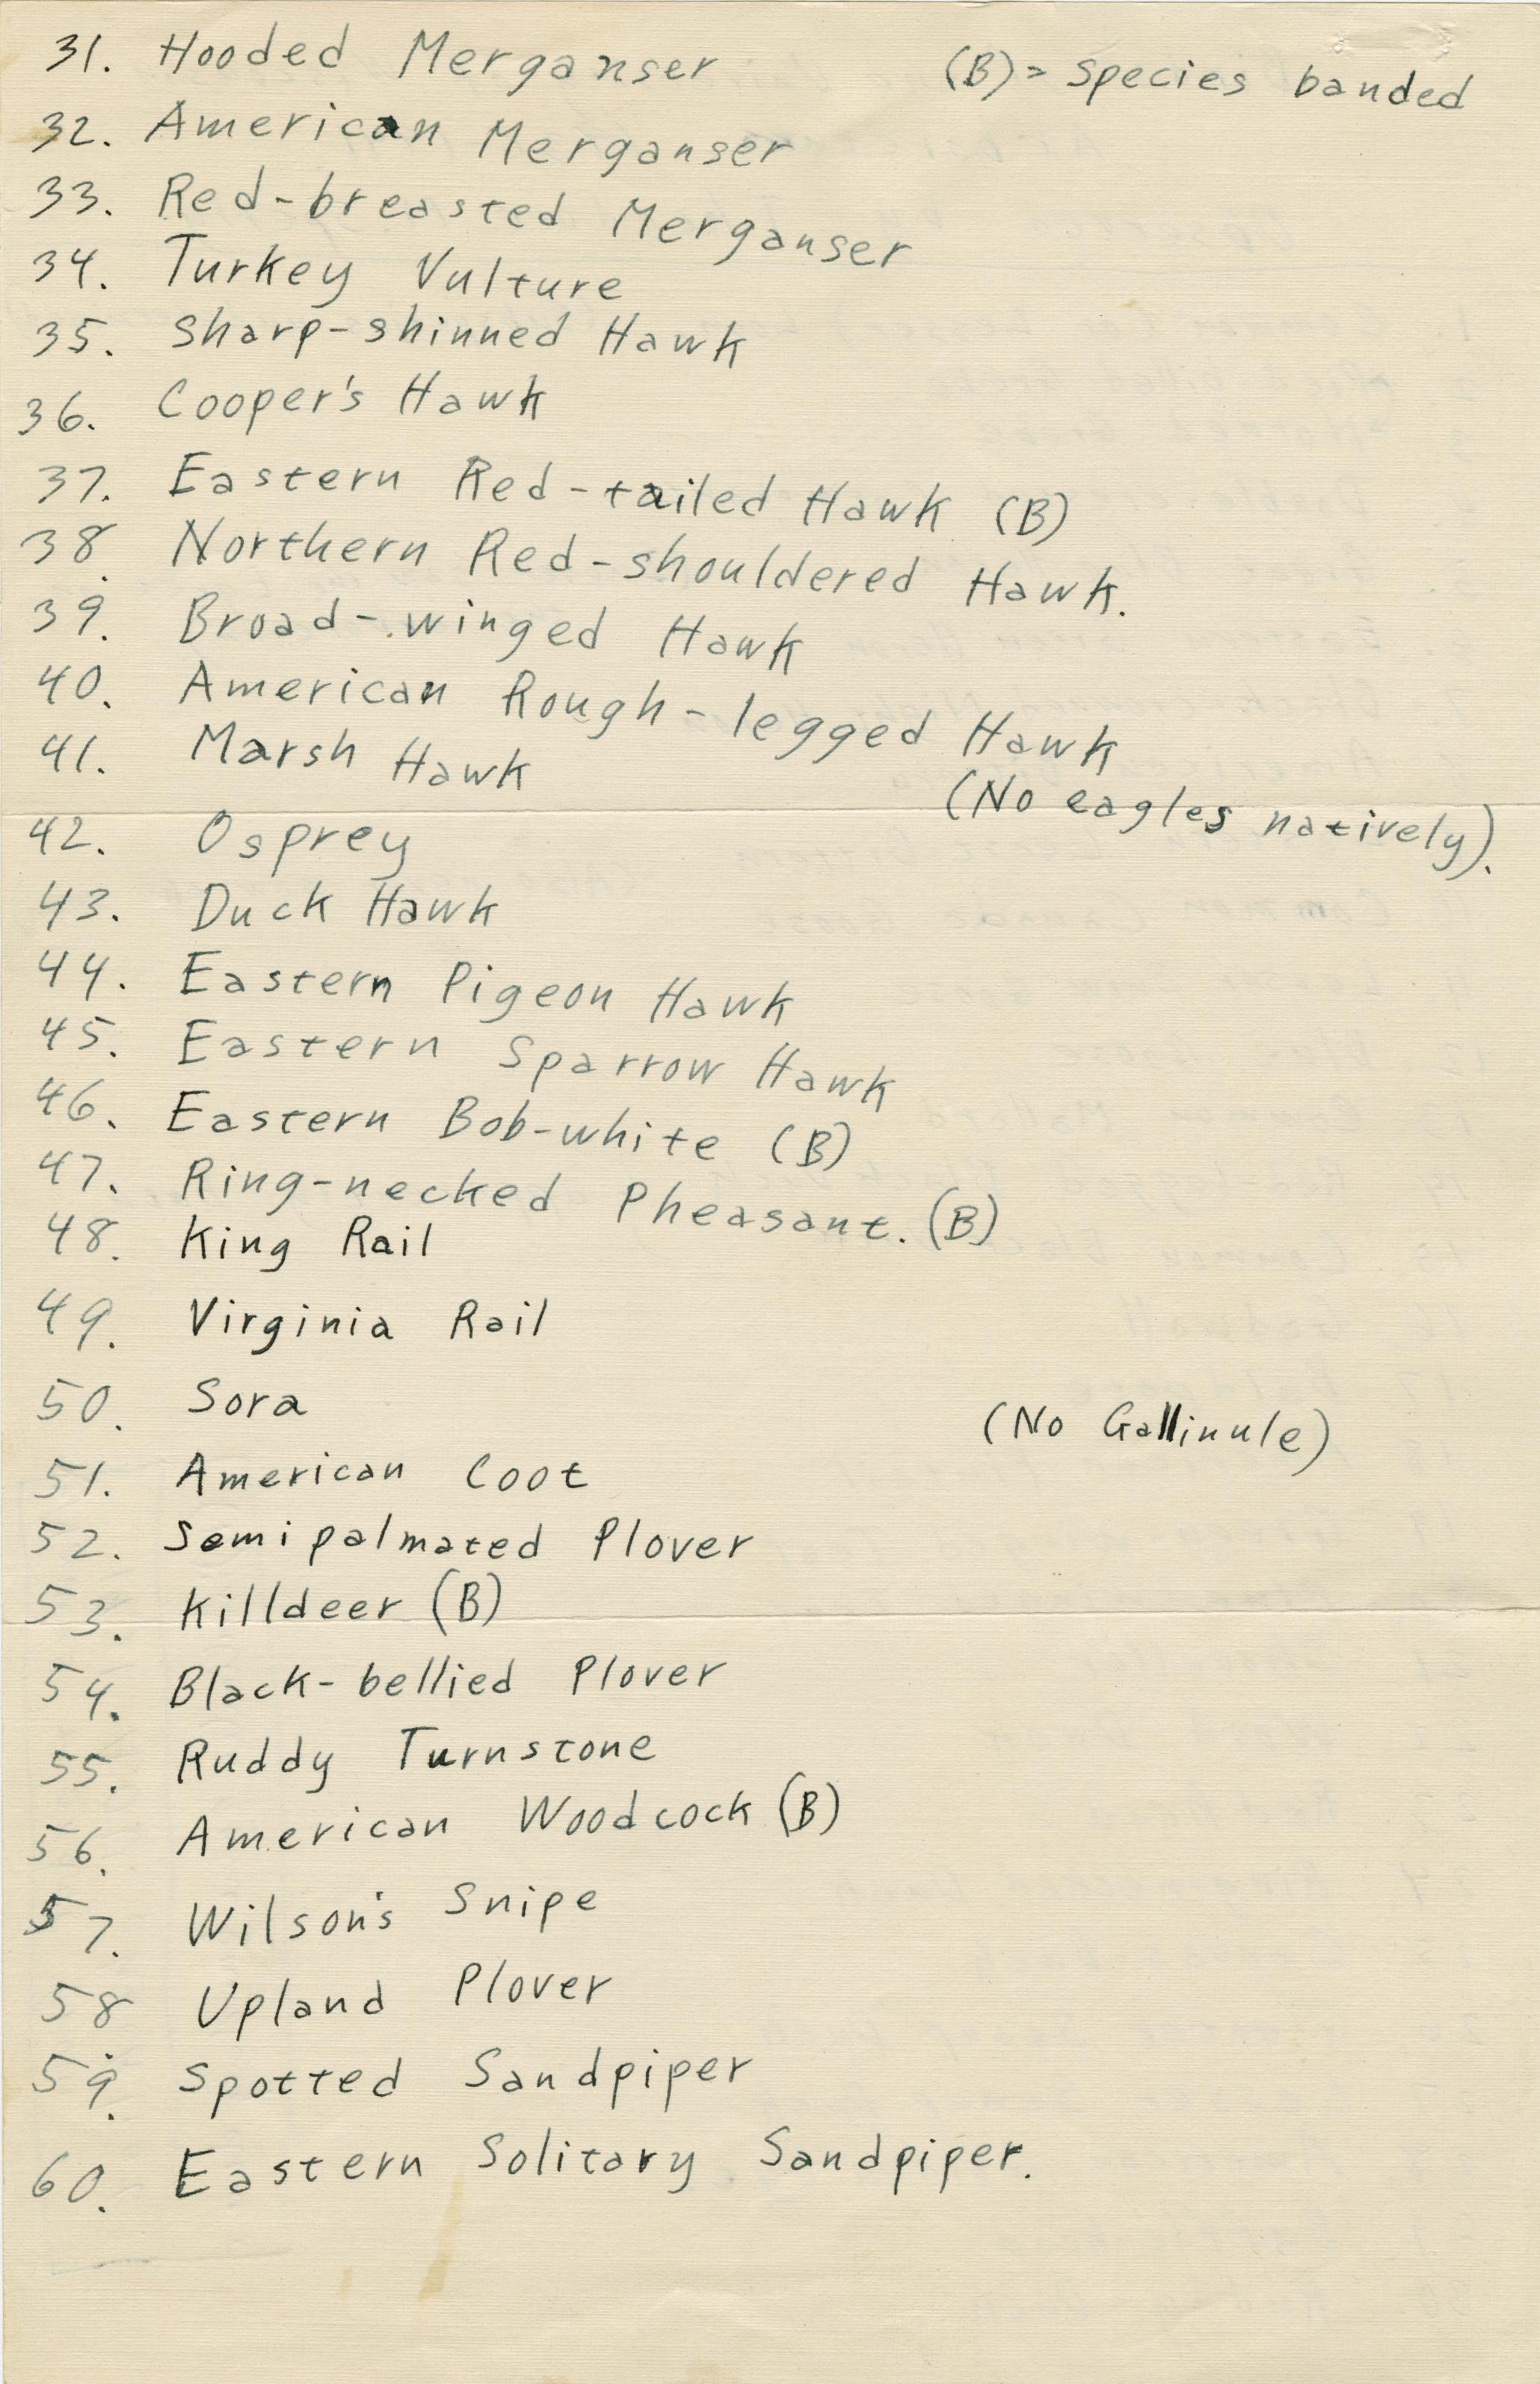 31. Hooded Merganser (B) = species banded
32. American Merganser
33. Red-breasted Merganser
34. Turkey Vulture
35. Sharp-shinned Hawk
36. Cooper's Hawk
37. Eastern Red-tailed Hawk (B)
38. Northern Red-shouldered Hawk.
39. Broad-winged Hawk
40. American Rough-legged Hawk
41. Marsh Hawk
(No eagles natively).
42. Osprey
43. Duck Hawk
44. Eastern Pigeon Hawk
45. Eastern Sparrow Hawk
46. Eastern Bob-white (B)
47. Ring-necked Pheasant. (B)
48. King Rail
49. Virginia Rail
50. Sora
(No Gallinule)
51. American Coot
52. Semipalmated Plover
53. Killdeer (B)
54. Black-bellied Plover
55. Ruddy Turnstone
56. American Woodcock (B)
57. Wilson's Snipe
58. Upland Plover
59. Spotted Sandpiper
60. Eastern Solitary Sandpiper.